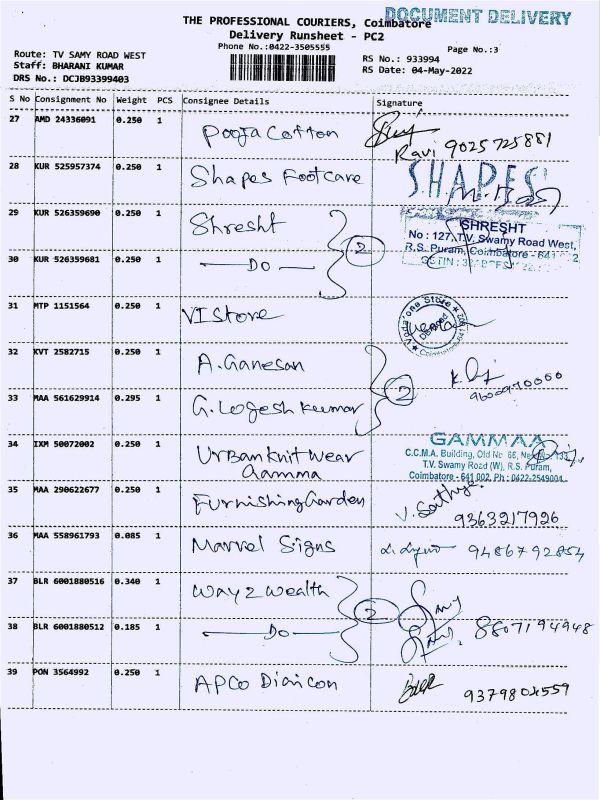 DOCUMENT DELIVERY
THE PROFESSIONAL COURIERS, Coimbatore
Delivery Runsheet - PC2
Phone No.:0422-3505555
Page No.:3
Route: TV SAMY ROAD WEST
Staff: BHARANI KUMAR
DRS No.: DCJB93399403
RS No.: 933994
RS Date: 04-May-2022
S No Consignment No Weight PCS Consignee Details Signature
27 AMD 24336091 0.250 1 Pooja Cotton
Ravi 9025725881
28 KUR 525957374 0.250 1 Shapes Footcare SHAPES
29 KUR 526359690 0.250 1 Shresht
SHRESHT
No : 127, T.V. Swamy Road West,
R.S. Puram, Coimbatore - 641 002
GSTIN :
30 KUR 526359681 0.250 1 — Do — 2
31 MTP 1151564 0.250 1 VI Store
32 KVT 2582715 0.250 1 A. Ganesan
33 MAA 561629914 0.295 1 G. Logesh Kumar 2
34 IXM 50072002 0.250 1 Urban Knit Wear
Gamma
GAMMAA
C.C.M.A. Building, Old No 66,
T.V. Swamy Road (W), R.S. Puram,
Coimbatore - 641 002. Ph : 0422-2549004
35 MAA 290622677 0.250 1 Furnishing Garden V. Sathya
9363217926
36 MAA 558961793 0.085 1 Marvel Signs 9486792854
37 BLR 6001880516 0.340 1 Way 2 Wealth
38 BLR 6001880512 0.185 1 — Do — 2 8807194948
39 PON 3564992 0.250 1 APCO 9379804559